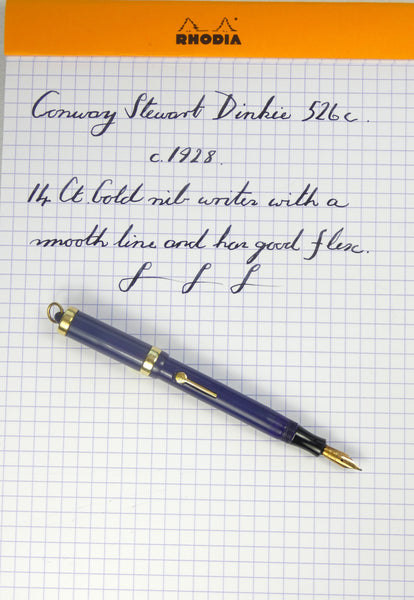 RHODIA
Conway Stewart Dinkie 526c.
c.1928.
14 Ct. Gold nib writes with a
smooth line and has good flex.